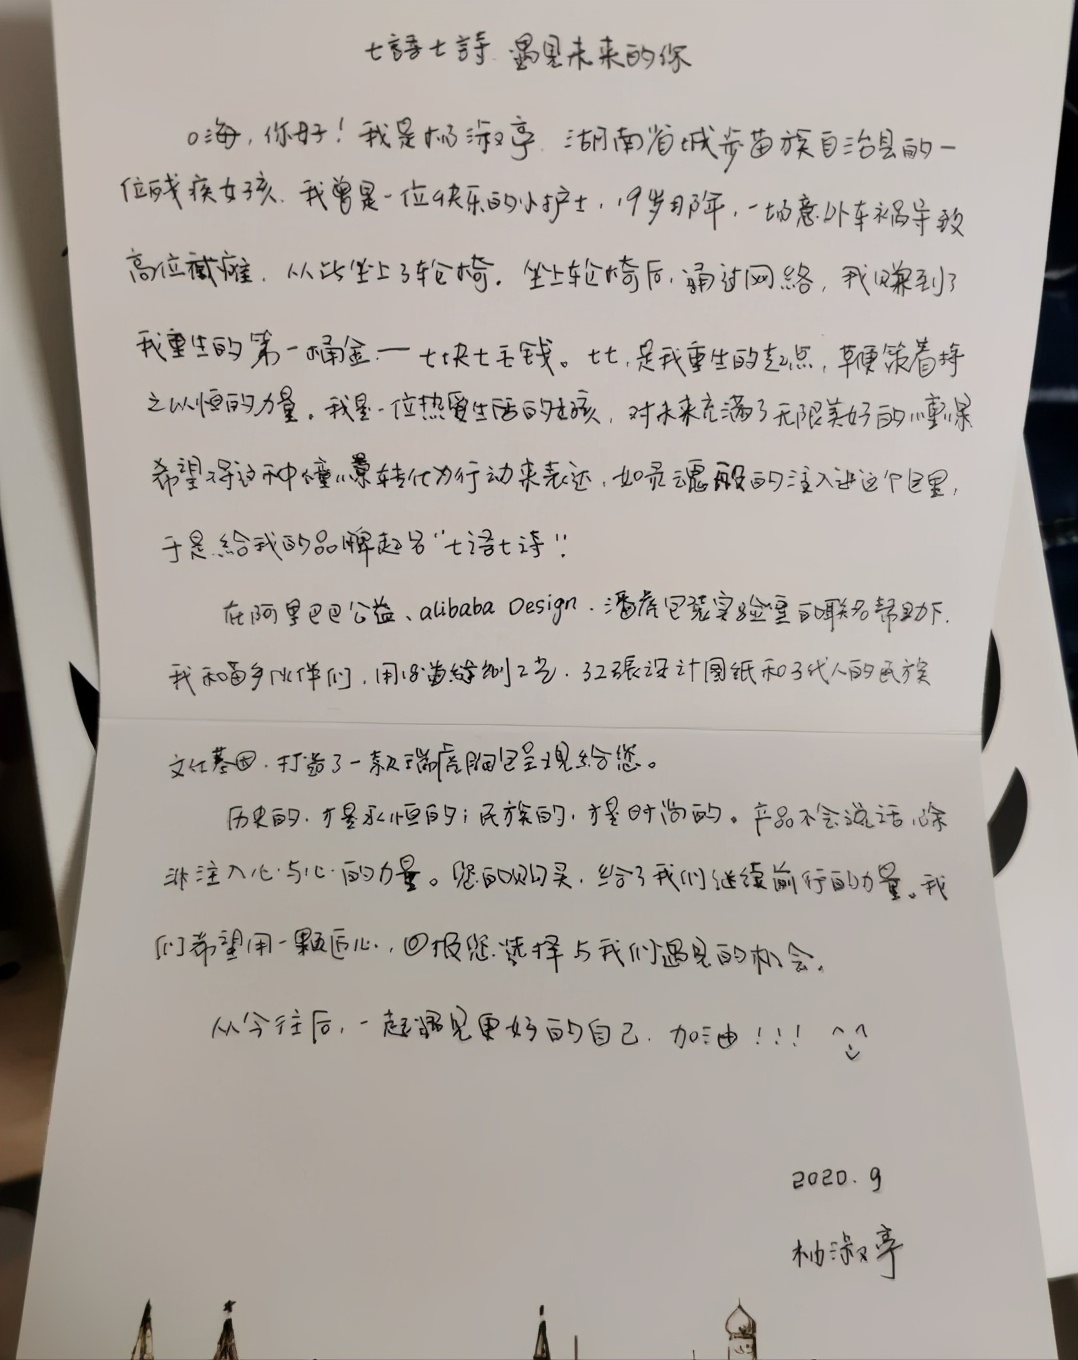 七語七詩 遇見未来的你
嗨，你好！我是杨淑亭，湖南省城步苗族自治县的一
位残疾女孩，我曾是一位快乐的小护士，19岁那年，一场意外车祸导致
高位截瘫，从此坐上了轮椅。坐上轮椅后，通过网络，我赚到了
我重生的第一桶金——七块七毛钱。七七，是我重生的起点，鞭策着持
之以恒的力量。我是一位热爱生活的女孩，对未来充满了无限美好的憧憬
希望将这种憧憬转化为行动来表达，如灵魂般的注入进这个包里，
于是給我的品牌起名"七语七诗"！
在阿里巴巴公益、alibaba Design、潘虎包装实验室的联名帮助下，
我和苗乡伙伴们，用18道綉制工艺，32張设计图纸和3代人的民族
文化基因，打造了一款瑞虎胸包呈现给您。
历史的，才是永恒的；民族的，才是时尚的。产品不会说话，除
非注入心与心的力量。您的购买，给了我们继续前行的力量。我
们希望用一颗匠心，回报您选择与我们遇见的机会。
从今往后，一起遇见更好的自己，加油！！！
2020.9
杨淑亭